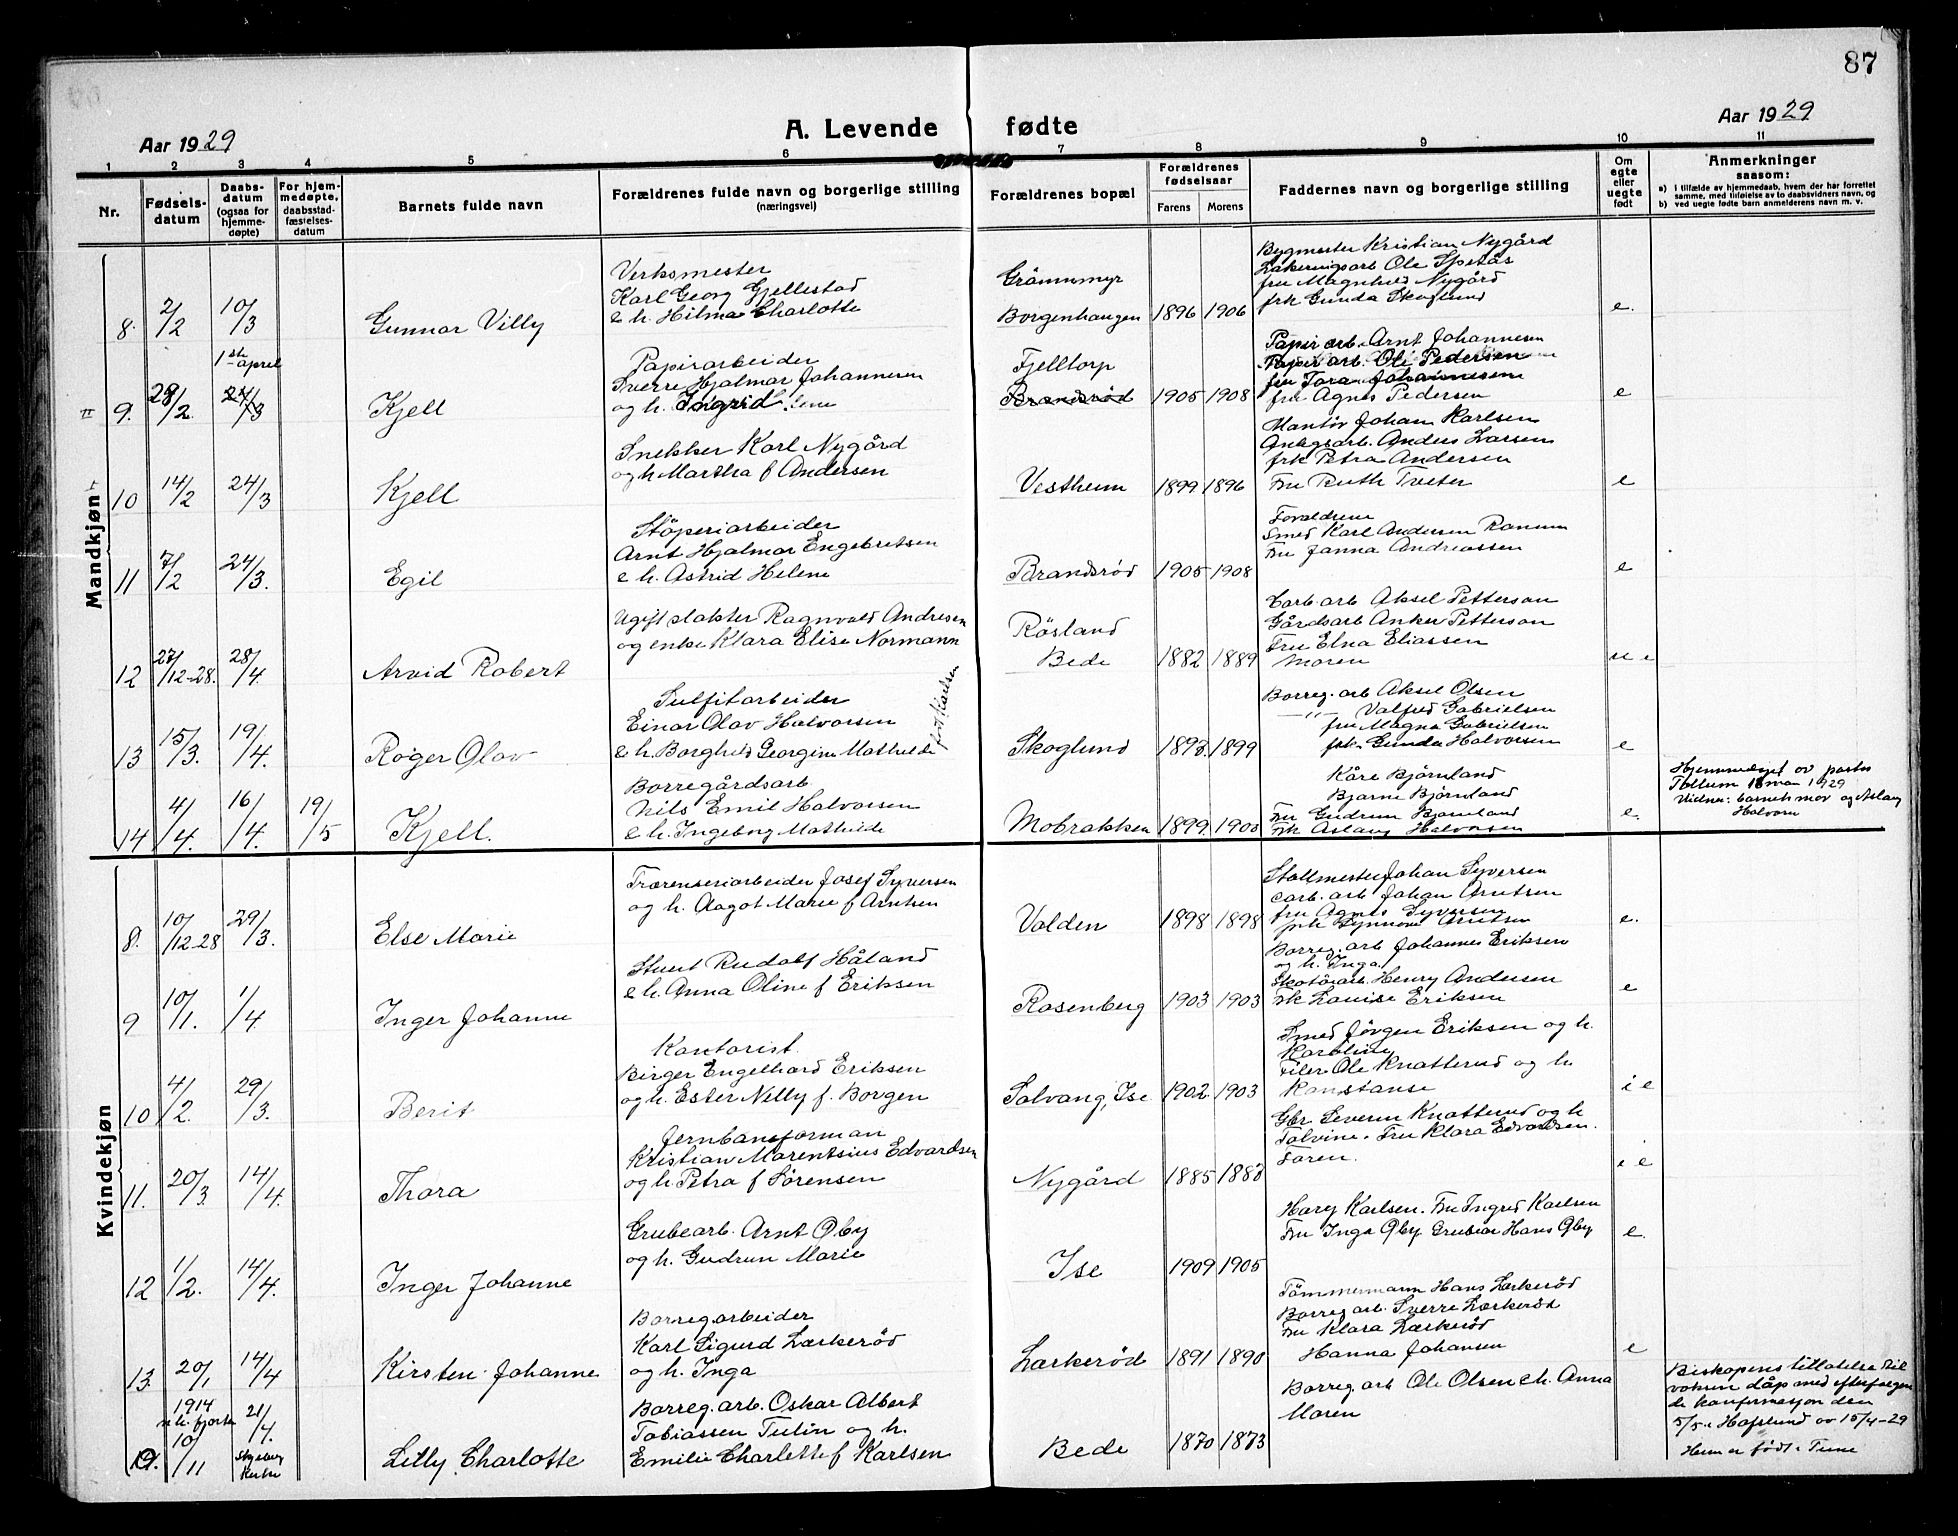 87
Aar 1929
A. Levende fødte
Aar 1929
1 2 3 4 5 6 7 8 9 10 11
Nr.
Fødsels-
datum
Daabs-
datum
(ogsaa for
hjemme-
døpte)
For hjem-
medøpte,
daabsstad-
fæstelses-
datum
Barnets fulde navn
Forældrenes fulde navn og borgerlige stilling
(næringsvei)
Forældrenes bopæl
Forældrenes
fødselsaar
Farens
Morens
Faddernes navn og borgerlige stilling
Om
egte
eller
uegte
født
Anmerkninger
saasom:
a) i tilfælde av hjemmedaab, hvem der har forrettet
samme, med tilføielse av to daabsvidners navn, og
b) ved uegte fødte barn anmelderens navn m. v.
Mandkjøn
8. 2/2 10/3
Gunnar Villy
Verksmester
Karl Georg Gjellestad
& h. Hilma Charlotte
Grönnmyr
Borgenhaugen 1896 1906
Bygmester Kristian Nygård
Ole Spetås
fru Magnhild Nygård
frk Gunda Skoglund
e.
9. 28/2 1ste april 24/3
Kjell
Papirarbeider
Sverre Hjalmar Johannesen
og h. Ingrid
Fjelltorp
Brandsrød 1905 1908
Papirarb. Arnt Johannesen
Papirarb. Ole Pedersen
fru Tora Johannesen
frk Agnes Pedersen
e
10 14/2 24/3
Kjell
Snekker Karl Nygård
og h Martha f Andersen
Vestheim 1899 1896
Montör Johan Karlsen
Anlegsarb. Anders Larsen
frk Petra Andersen
Fru Ruth Tveter
e
11 7/2 24/3.
Egil
Stöperiarbeider
Arnt Hjalmar Engebretsen
& h. Astrid Helene
Brandsrød 1905 1908
Forældrene
Smed Karl Andersen Ranum
Fru Janna Andreassen
e
12 27/12-28. 28/4.
Arvid Robert
Ugift slakter Ragnvald Andresen
og enke Klara Elise Normann
Rösland
Bede 1882 1889
Carb. arb Aksel Petterson
Gårdsarb Anker Petterson
Fru Elna Eliassen
Moren
u e
13 15/3. 19/4.
Roger Olav
Sulfitarbeider
Einar Olav Halvorsen
& h. Borghild Georgine Mathilde
Skoglund 1893 1899
Borreg. arb Aksel Olsen
—"— Valfred Gabrielsen
fru Magna Gabrielsen
frk. Gunda Halvorsen
e
14 4/4. 16/4. 19/5
Kjell.
Borregårdsarb.
Nils Emil Halvorsen
& h. Ingeborg Mathilde
Mobrakken 1899 1900
Kåre Bjørnland
Bjarne Bjørnland
Fru Gudrun Bjørnland
Frk Aslaug Halvorsen
e.
Vidner: barnets mor og Aslaug
Halvorsen
Kvindekjøn
8. 10/12-28 29/3.
Else Marie
Trærenseriarbeider Josef Syversen
og h. Aagot Marie f Arntsen
Volden 1898 1898
Stallmester Johan Syversen
carb. arb. Johan Arntsen
fru Agnes Syversen
frk Synnøve Arntsen
e.
9 10/1. 1/4
Inger Johanne
Stuert Rudolf Håland
& h. Anna Oline f Eriksen
Rosenberg 1903 1903
Borreg. arb Johannes Eriksen
og h. Inga
Skotöiarb. Henry Andersen
Frk Louise Eriksen
e
10 4/2. 29/3.
Berit
Kontorist.
Birger Engelhard Eriksen
og h. Ester Nelly f. Borgen
Solvang, Ise 1902 1903
Smed Jörgen Eriksen og h.
Karoline
Filer Ole Knatterud og h
Konstanse
i e
11. 20/3. 14/4.
Thora
Jernbaneforman
Kristian Marentsius Edvardsen
og h. Petra f Sørensen
Nygård 1885 1883
Gbr. Severin Knatterud og h
Tolvine. Fru Klara Edvardsen.
Faren.
i e
12 1/2. 14/4.
Inger Johanne
Grubearb. Arnt Øby
og h. Gudrun Marie
Ise 1909 1905
Hary Karlsen. Fru Ingrid Karlsen
Fru Inga Øby Grubear Hans Øby
e.
13. 20/1 14/4
Kirsten Johanne
Borreg arbeider
Karl Sigurd Lærkerød
og h. Inga
Lærkerød 1891 1890
Tömmermann Hans Lærkerød
Borreg arb. Sverre Lærkerød
Fru Klara Lærkerød
Hanna Johansen
e
1914
10/11 21/4.
Skjeberg
kirke
Lilly Charlotte
Borreg. arb. Oskar Albert
Tobiassen Tulin og h.
Emilie Charlotte f Karlsen
Bede 1870 1873
Borreg. arb Ole Olsen & h. Anna
Moren
Biskopens tillatelse til
voksen dåp med efterfølgen
de konfirmasjon den
5/5 i Hafslund av 15/4-29
Hun er født i Tune